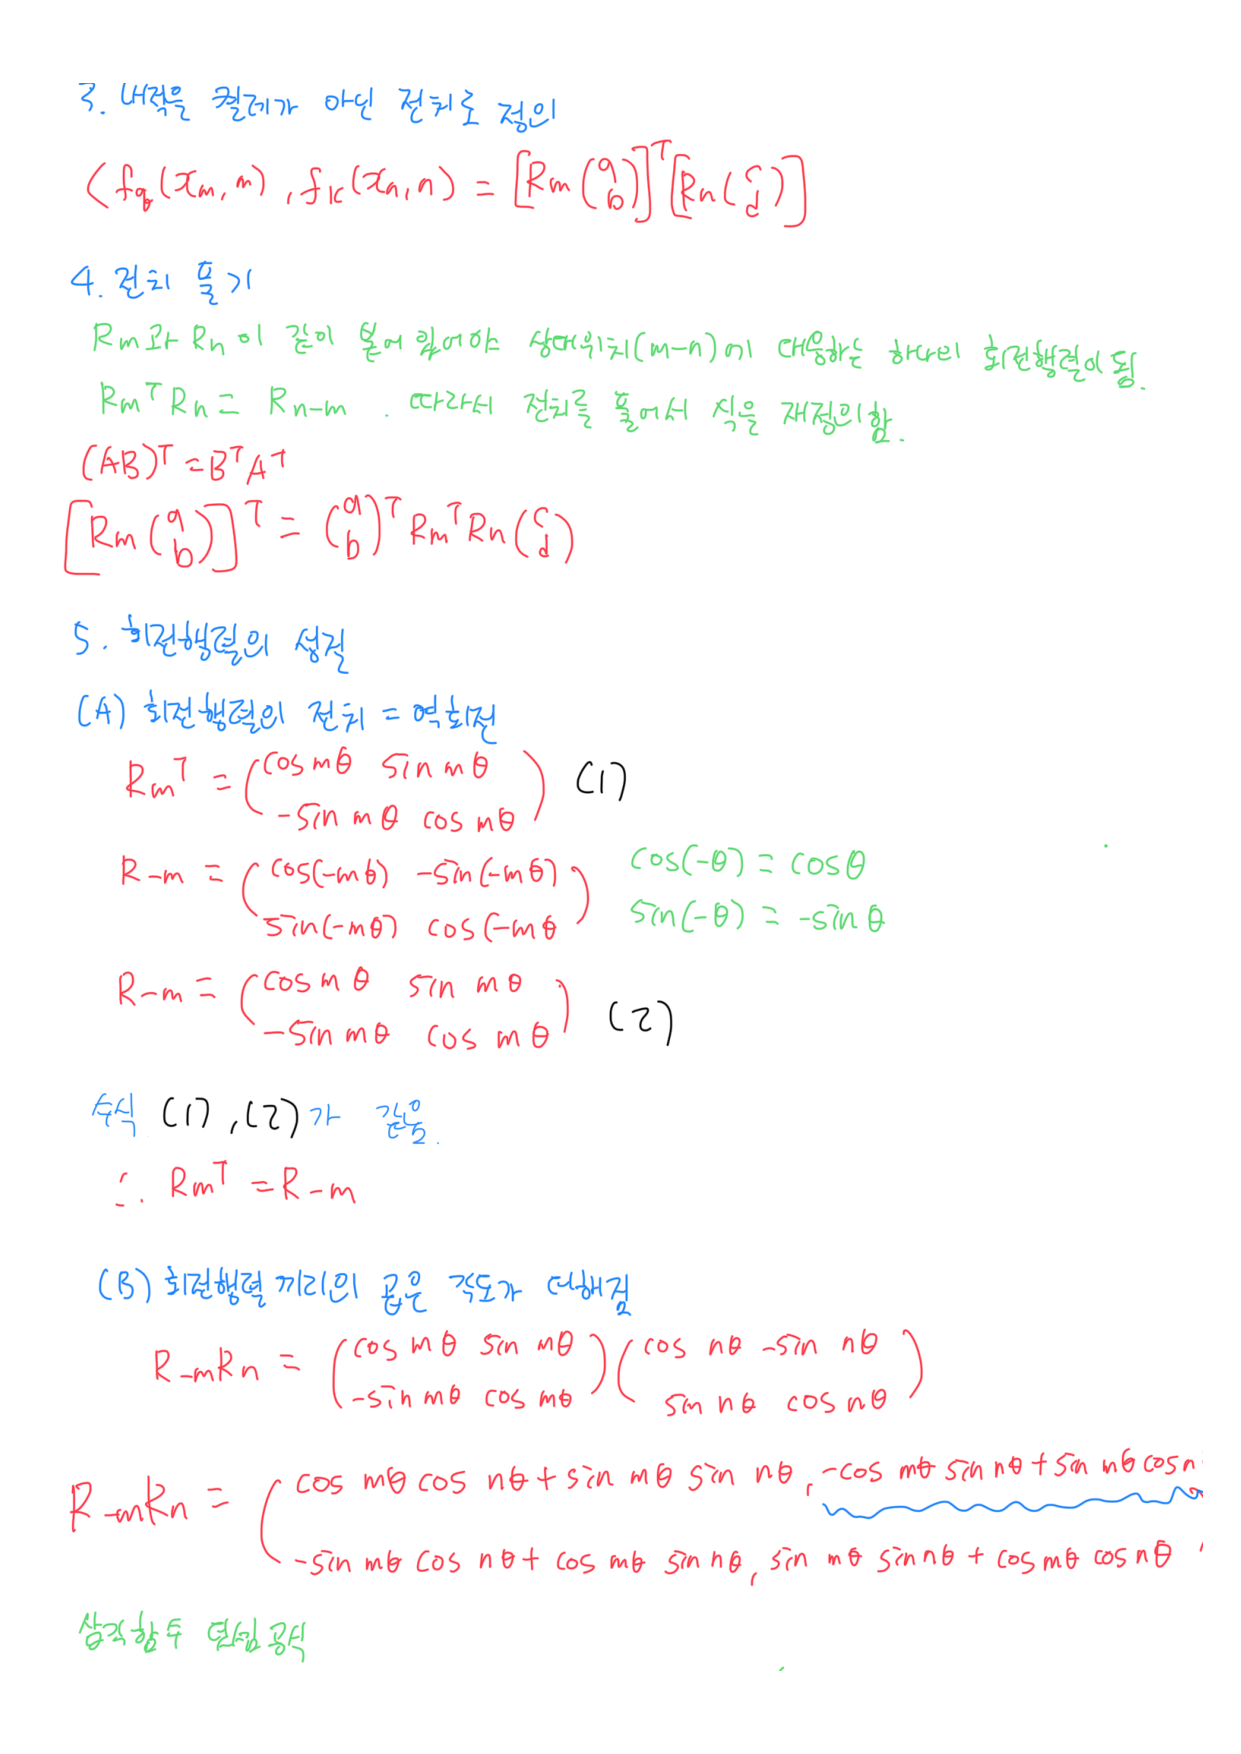 3. 내적을 켤레가 아닌 전치로 정의
⟨fq(xm,m), fk(xn,n) = [Rm(a b)]ᵀ[Rn(c d)]
4. 전치 풀기
Rm과 Rn이 같이 붙어있어야 상대위치(m-n)에 대응하는 하나의 회전행렬이 됨.
RmᵀRn = Rn-m . 따라서 전치를 풀어서 식을 재정의함.
(AB)ᵀ = BᵀAᵀ
[Rm(a b)]ᵀ = (a b)ᵀ Rmᵀ Rn (c d)
5. 회전행렬의 성질
(A) 회전행렬의 전치 = 역회전
Rmᵀ = (cos mθ sin mθ
-sin mθ cos mθ) (1)
R-m = (cos(-mθ) -sin(-mθ)
sin(-mθ) cos(-mθ)
cos(-θ) = cosθ
sin(-θ) = -sinθ
R-m = (cos mθ sin mθ
-sin mθ cos mθ) (2)
수식 (1), (2)가 같음.
∴ Rmᵀ = R-m
(B) 회전행렬 끼리의 곱은 각도가 더해짐
R-mRn = (cos mθ sin mθ
-sin mθ cos mθ)(cos nθ -sin nθ
sin nθ cos nθ)
R-mRn = (cos mθ cos nθ + sin mθ sin nθ, -cos mθ sin nθ + sin mθ cos n
-sin mθ cos nθ + cos mθ sin nθ, sin mθ sin nθ + cos mθ cos nθ
삼각함수 덧셈 공식